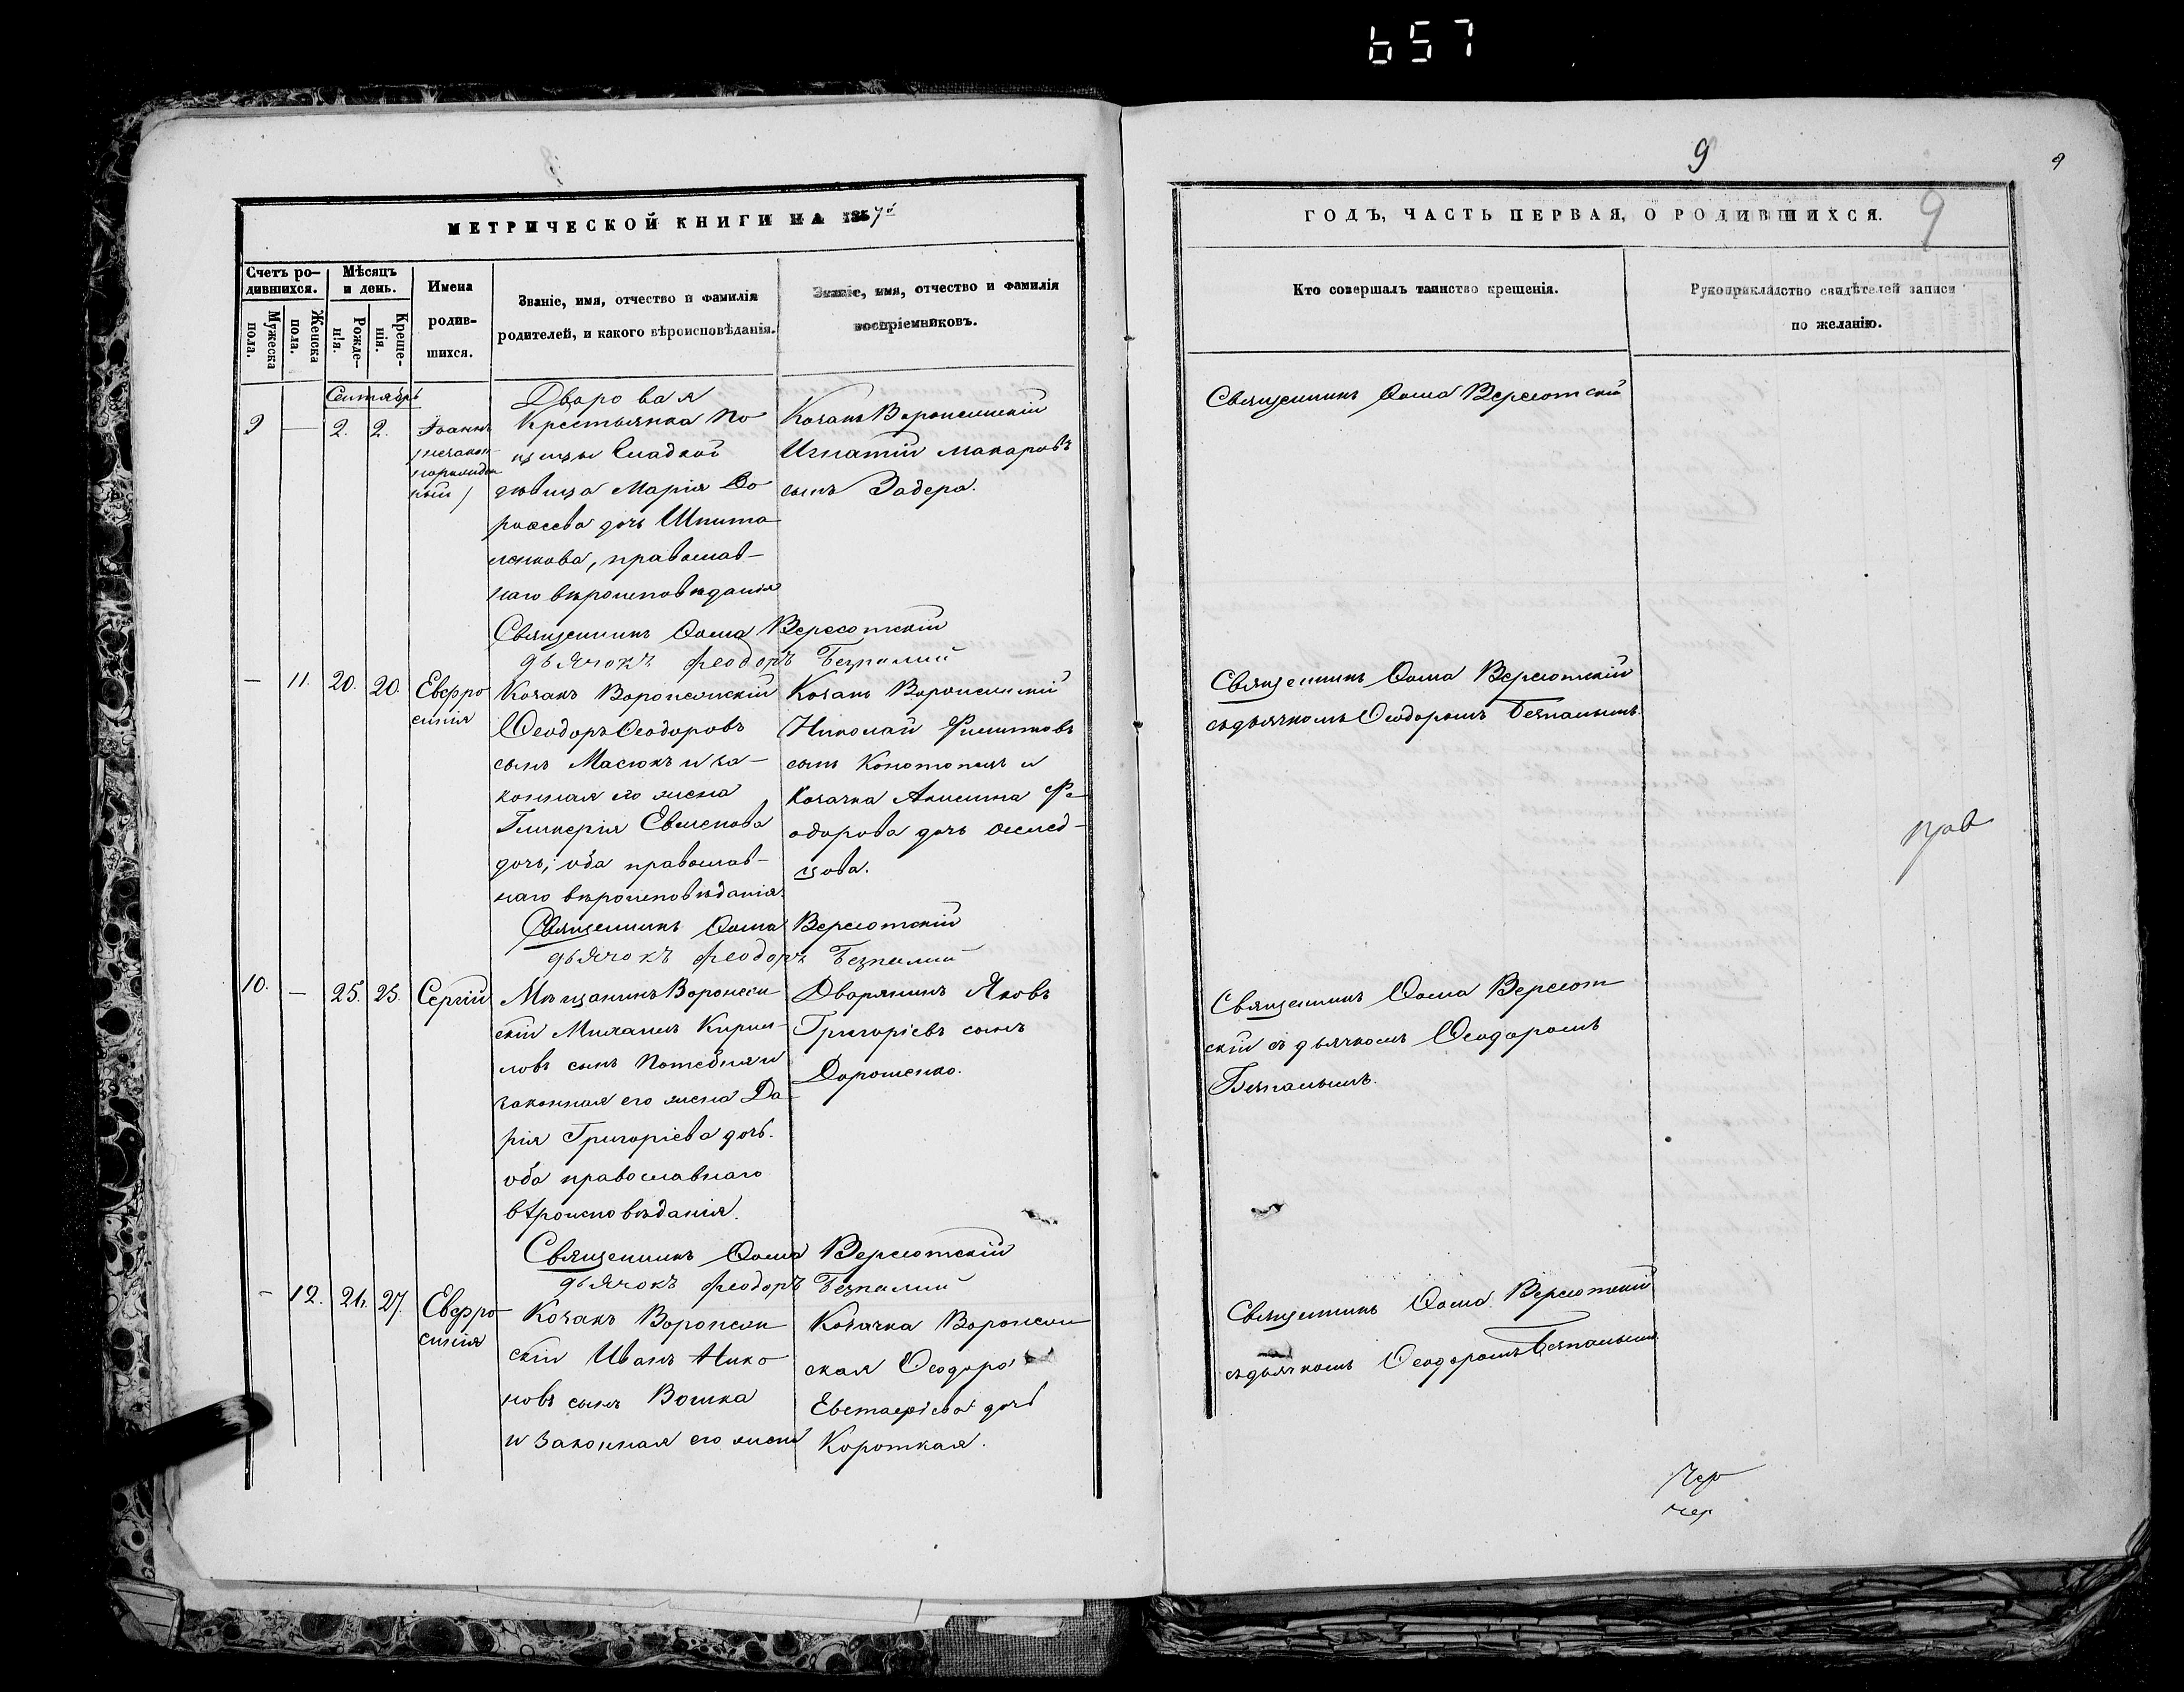 657
9
9
9
МЕТРИЧЕСКОЙ КНИГИ НА 1857й
ГОДЪ, ЧАСТЬ ПЕРВАЯ, О РОДИВШИХСЯ.
Счетъ ро-
дившихся.
Мѣсяцъ
и день.
Имена
родив-
шихся.
Званіе, имя, отчество и фамилія
родителей, и какого вѣроисповѣданія.
Званіе, имя, отчество и фамилія
воспріемниковъ.
Мужеска
пола.
Женска
пола.
Рожде-
нія.
Креще-
нія.
Кто совершалъ таинство крещенія.
Рукоприкладство свидѣтелей записи
по желанію.
Сентябрь
9 — 2. 2. Іоаннъ
Дворовая
Крестьянка По
дѣвица Марія До
дочь Шпита
лякова, православ-
наго вѣроисповѣданія
Козакъ Воронежскій
Игнатій Макаровъ
сынъ Задера.
Священникъ Ѳома Вересотскій
Священникъ Ѳома Вересотскій
дьячокъ Феодоръ Безпалий
— 11. 20. 20. Евфро
синія
Козакъ Воронежскій
Ѳеодоръ Ѳеодоровъ
сынъ Масюкъ и за-
конная его жена
Гликерія Евменова
дочь; оба православ-
наго вѣроисповѣданія.
Козакъ Воронежскій
Николай Филиповъ
сынъ Конотопецъ и
Козачка Акилина Фе
одорова дочь
цова.
Священникъ Ѳома Вересотскій
съ дьячкомъ Ѳеодоромъ Безпалымъ.
Священникъ Ѳома Вересотскій
дьячокъ Феодоръ Безпалий
10. — 25. 25. Сергій
Мѣщанинъ Воронеж
скій Михаилъ Кирил-
ловъ сынъ Потебня и
законная его жена Да
рія Григоріева дочь.
оба православнаго
вѣроисповѣданія.
Дворянинъ Яковъ
Григоріевъ сынъ
Дорошенко.
Священникъ Ѳома Вересот
скій съ дьячкомъ Ѳеодоромъ
Безпалымъ.
Священникъ Ѳома Вересотскій
дьячокъ Феодоръ Безпалий
— 12. 26. 27. Евфро
синія
Козакъ Воронеж
скій Иванъ Нико
новъ сынъ Вошка
и законная его жена
Козачка Воронеж
ская Ѳеодора
Евстафіева дочь
Короткая.
Священникъ Ѳома Вересотскій
съ дьячкомъ Ѳеодоромъ Безпалымъ